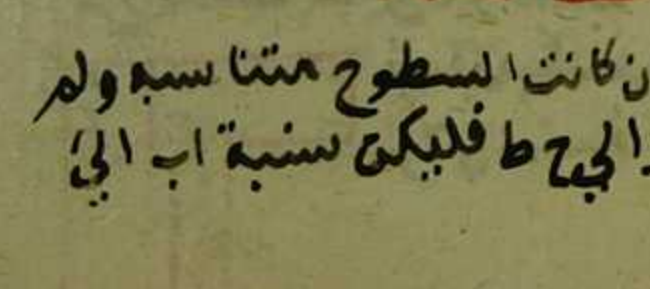 ن كانت السطوح متناسبه ولم
الى ح ط فليكن نسبة ا ب الى